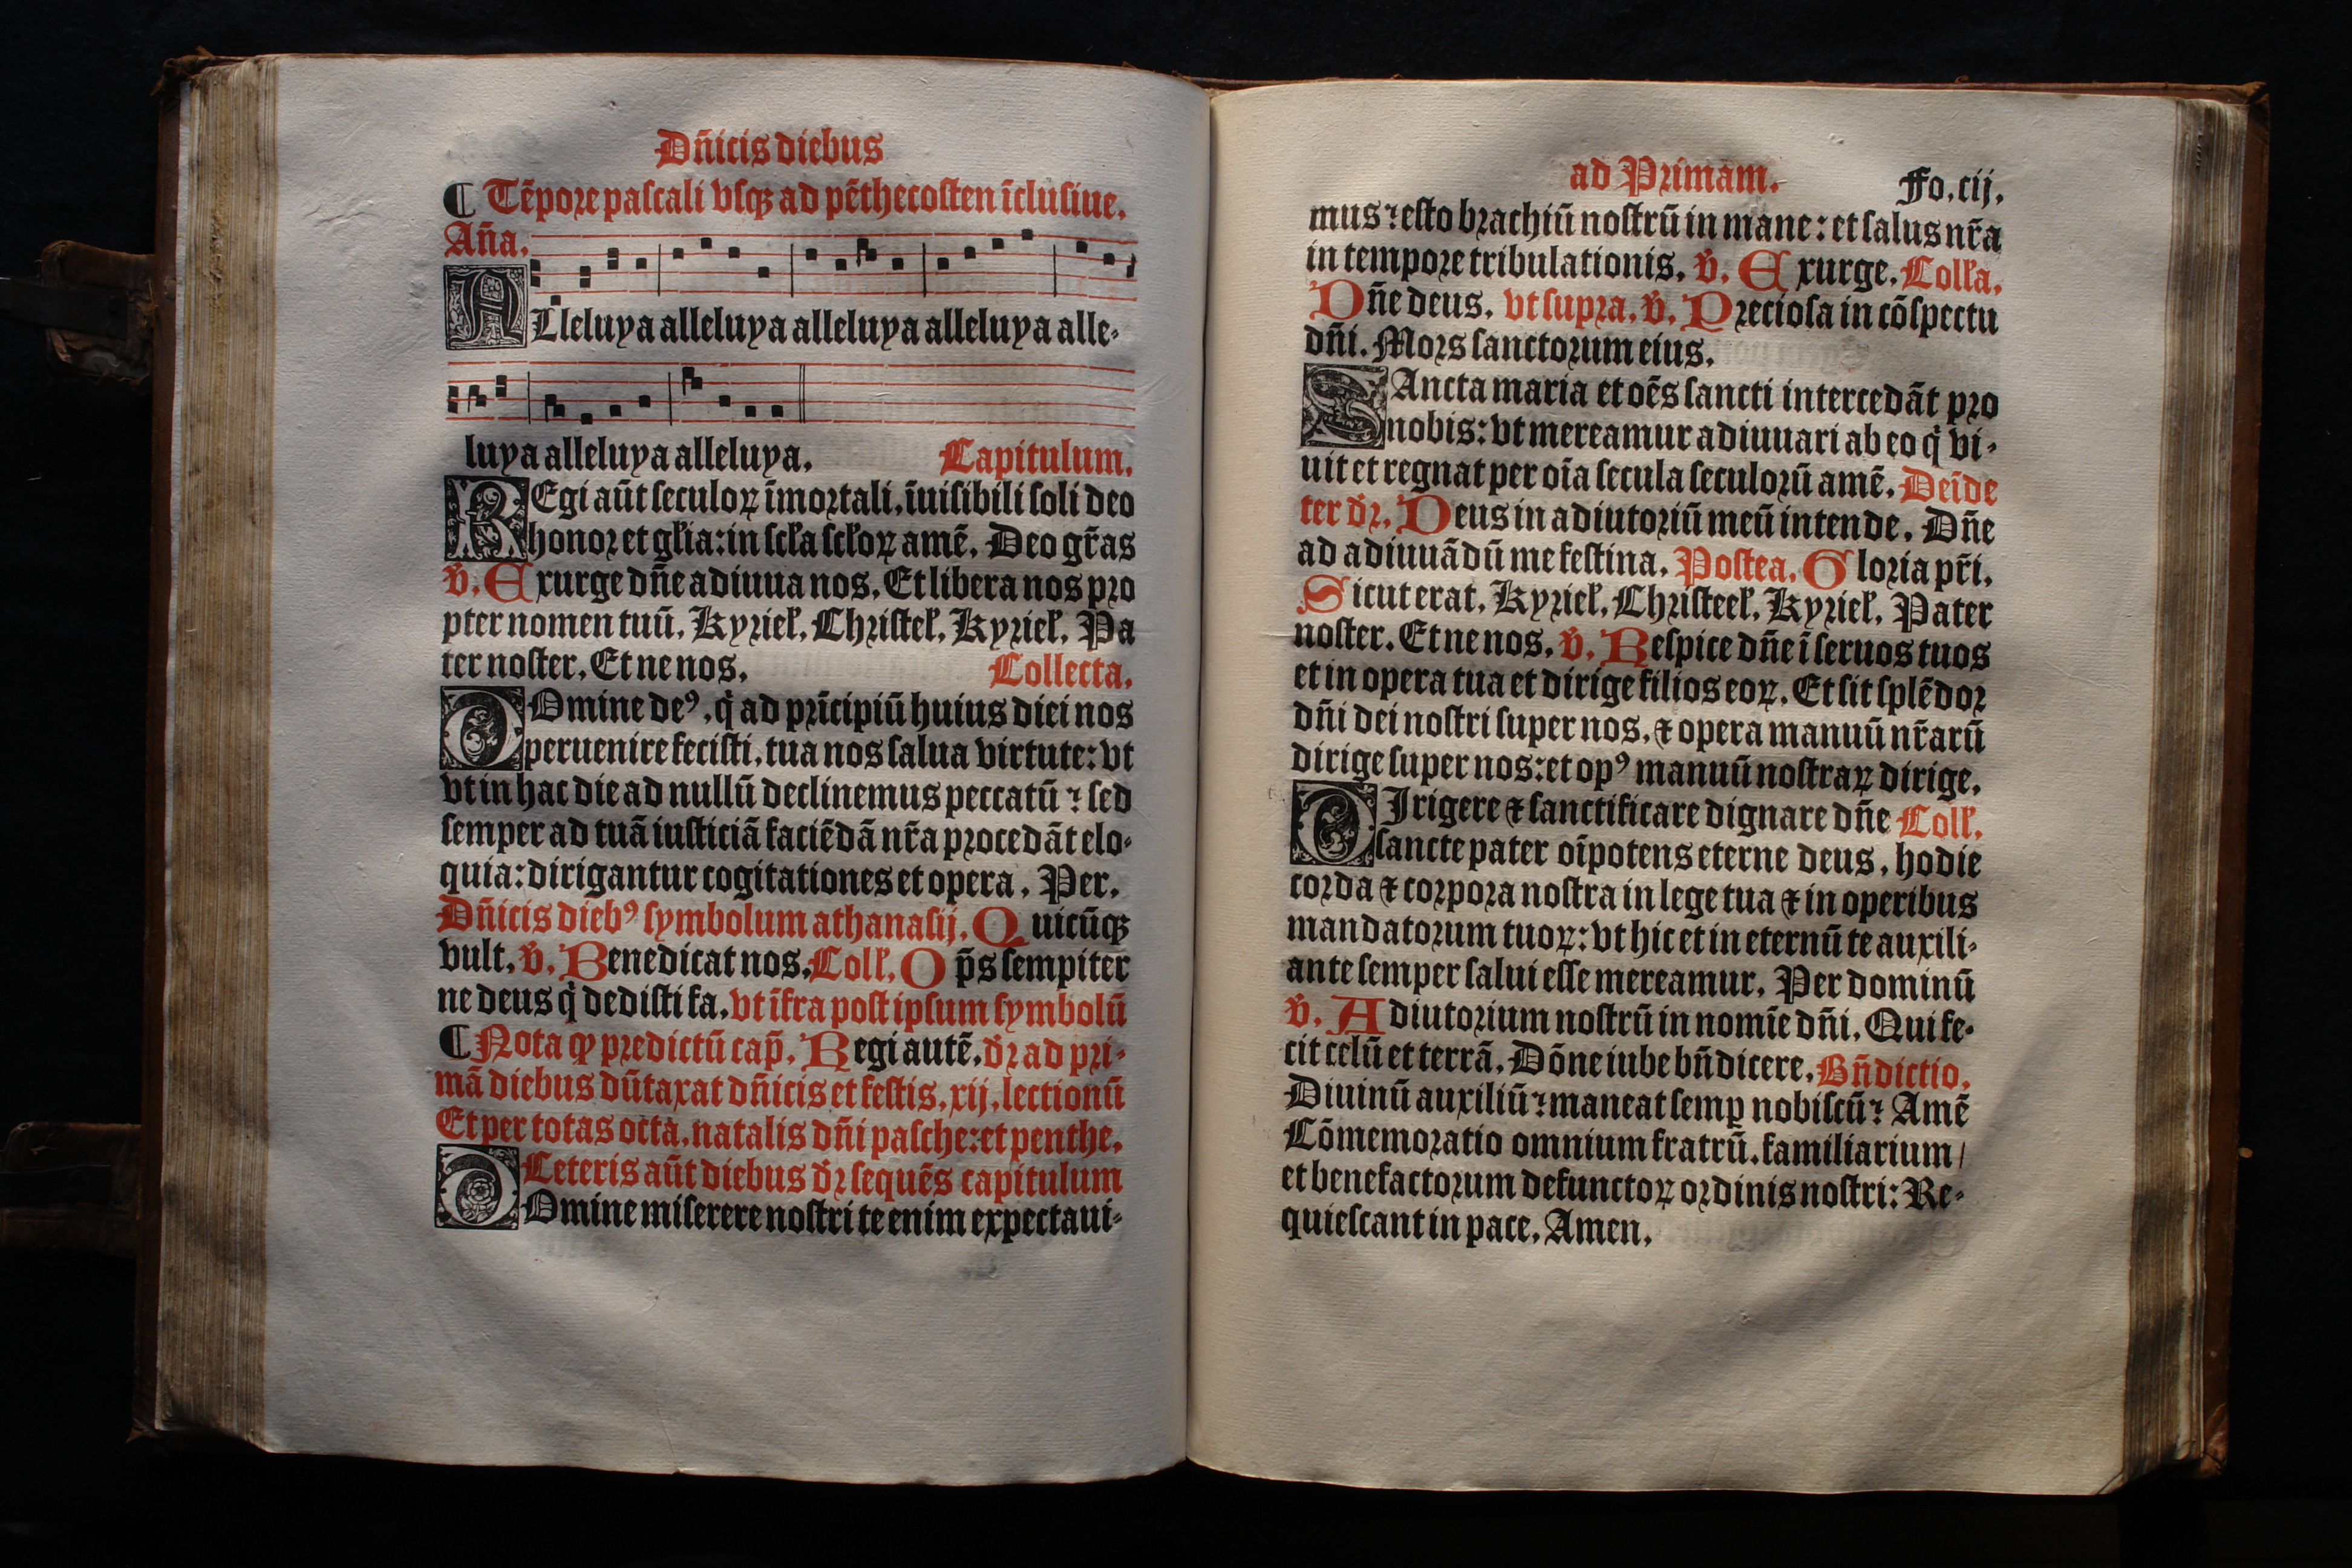 Dñicis diebus
¶ Tẽpore paſcali vſqꝫ ad pẽthecoſten ĩcluſiue.
Aña.
ALleluya alleluya alleluya alleluya alle-
luya alleluya alleluya. Capitulum.
REgi aũt ſeculoꝝ ĩmortali, ĩuiſibili ſoli deo
honor et gl̃ia: in ſcl̃a ſcl̃oꝝ amẽ. Deo gr̃as
v̾. Exurge dñe adiuua nos. Et libera nos pro
pter nomen tuũ. Kyriel̃. Chriſtel̃. Kyriel̃. Pa
ter noſter. Et ne nos. Collecta.
DOmine deꝰ, q̇ ad prĩcipiũ huius diei nos
peruenire feciſti, tua nos ſalua virtute: vt
vt in hac die ad nullũ declinemus peccatũ ⁊ ſed
ſemper ad tuã iuſticiã faciẽdã nr̃a procedãt elo-
quia: dirigantur cogitationes et opera. Per.
Dñicis diebꝰ ſymbolum athanaſij. Quicũqꝫ
vult. v̾. Benedicat nos. Coll̃. Op̃s ſempiter
ne deus q̇ dediſti fa. vt ĩfra poſt ipſum ſymbolũ
¶ Nota ꝙ predictũ cap̃. Regi autẽ. dr̃ ad pri-
mã diebus dũtaxat dñicis et feſtis. xij. lectionũ
Et per totas octa. natalis dñi paſche: et penthe.
Ceteris aũt diebus dr̃ ſequẽs capitulum
DOmine miſerere noſtri te enim expectaui-
ad Primam. Fo. cij.
mus ⁊ eſto brachiũ noſtrũ in mane: et ſalus nr̃a
in tempore tribulationis. v̾. Exurge. Coll̃a.
Dñe deus. vt ſupra. v̾. Precioſa in cõſpectu
dñi. Mors ſanctorum eius.
SAncta maria et oẽs ſancti intercedãt pro
nobis: vt mereamur adiuuari ab eo q̇ vi-
uit et regnat per oĩa ſecula ſeculorũ amẽ. Deĩde
ter dr̃. Deus in adiutoriũ meũ intende. Dñe
ad adiuuãdũ me feſtina. Poſtea. Gloria pr̃i.
Sicut erat. Kyriel̃. Chriſteel̃. Kyriel̃. Pater
noſter. Et ne nos. v̾. Reſpice dñe ĩ ſeruos tuos
et in opera tua et dirige filios eoꝝ. Et ſit ſplẽdor
dñi dei noſtri ſuper nos, ⁊ opera manuũ nr̃arũ
dirige ſuper nos: et opꝰ manuũ noſtraꝝ dirige.
DIrigere ⁊ ſanctificare dignare dñe Coll̃.
ſancte pater oĩpotens eterne deus, hodie
corda ⁊ corpora noſtra in lege tua ⁊ in operibus
mandatorum tuoꝝ: vt hic et in eternũ te auxili-
ante ſemper ſalui eſſe mereamur. Per dominũ
v̾. Adiutorium noſtrũ in nomĩe dñi. Qui fe-
cit celũ et terrã. Dõne iube bñdicere. Bñdictio.
Diuinũ auxiliũ ⁊ maneat ſemꝑ nobiſcũ ⁊ Amẽ
Cõmemoratio omnium fratrũ. familiarium /
et benefactorum defunctoꝝ ordinis noſtri: Re-
quieſcant in pace. Amen.